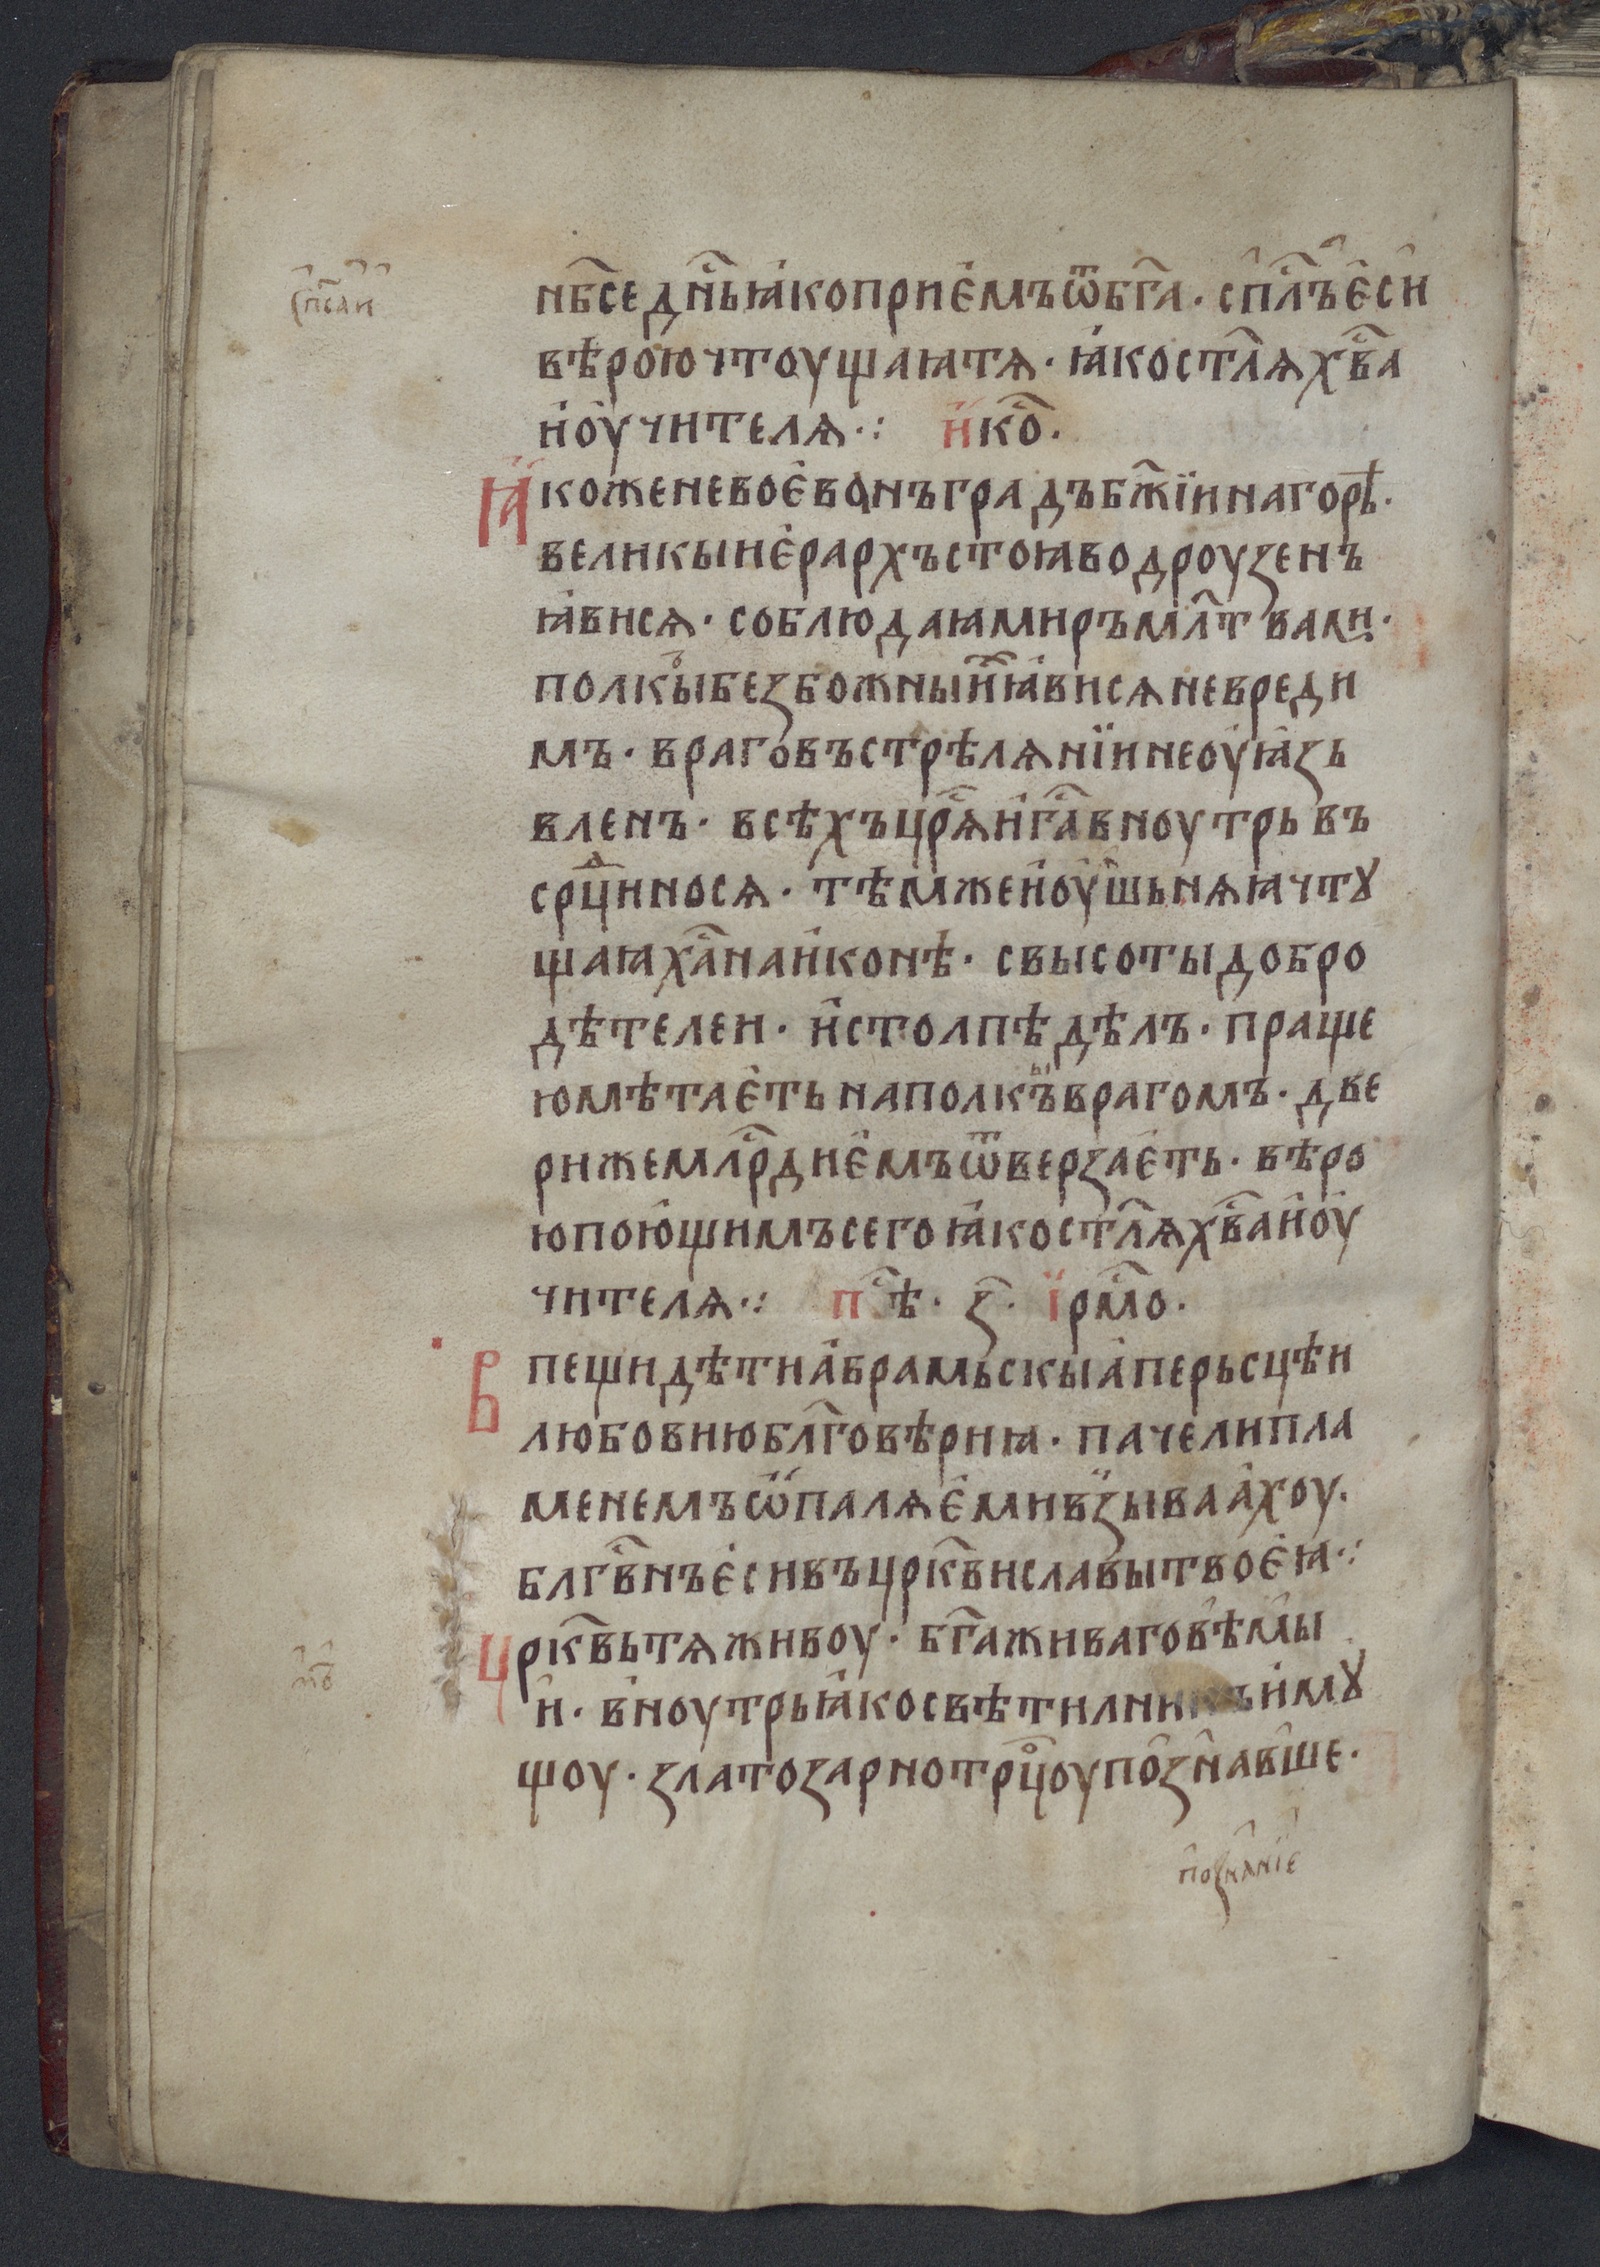 нб҃се дн҃ь ꙗко прие́мъ ѿ бг҃а · сп҃лъ е́си
вѣрою чтоущаꙗ тѧ · ꙗ́ко ст҃лѧ хв҃а
и҆ оу҆чителѧ ·: и҆ко҃ ·
Ꙗкоже не вое́ванъ градъ бж҃їи на горѣ ·
великыи е҆рархъ стоꙗ во дроузенъ
ꙗ҆висѧ · соблюдаꙗ миръ мл҃твами ·
полкы безбожны и҆ ꙗ҆висѧ невреди
мъ · враговъ стрѣлѧнїи неоуꙗзь
вленъ · всѣхъ цр҃ѧ и҆ г҃а вноутрь въ
ср҃ци носѧ · тѣмже и҆ оу҆шьнѧꙗ чтꙋ
щаꙗ х҃а на и҆конѣ · свысоты добро
дѣтелеи · и҆столпѣ дѣлъ · праще
ю мѣтае́ть на полкъ врагомъ · две
ри же млр҃дие́мъ ѿверзае́ть · вѣро
ю пою́щимъ сего ꙗ҆ко ст҃лѧ хв҃а и҆ оу
чителѧ ·: п҃ѣ · з҃ · ї҆рмо҃ ·
В пещи дѣти а҆врамьскыа҆ перьсцѣи
любовию бл҃говѣриꙗ · паче ли пла
менемъ ѡ҆палѧе́ми взываа́хоу ·
блг҃внъ е҆си въ цркв҃и славы твое́ꙗ ·:
Цркв҃ь тѧ живоу · бг҃а живаго вѣмы
и҆ · вноутрь ꙗ҆ко свѣтилникъ и҆мꙋ
щоу · златозарно трц҃оу познавше ·
познанїе